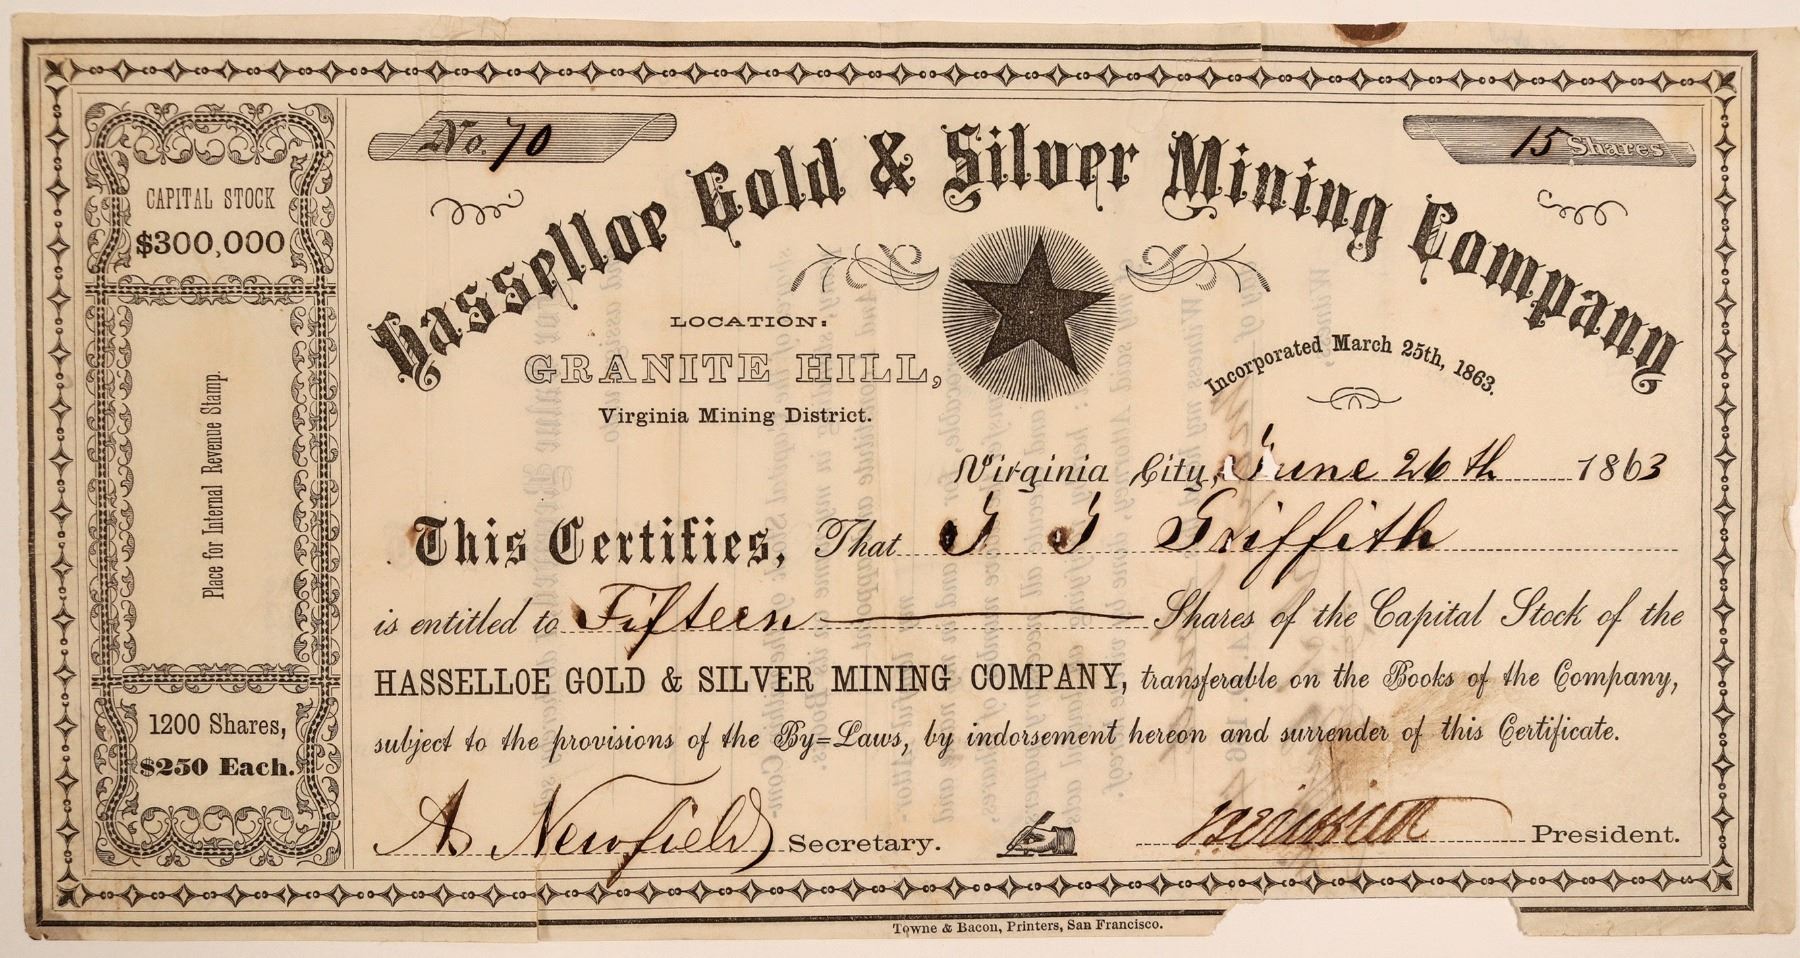 No. 70
15 Shares
Hasselloe Gold & Silver Mining Company
CAPITAL STOCK
$300,000
Place for Internal Revenue Stamp.
1200 Shares,
$250 Each.
LOCATION:
GRANITE HILL,
Virginia Mining District.
Incorporated March 25th, 1863.
Virginia City, June 26th 1863
This Certifies, That J J Griffith
is entitled to Fifteen Shares of the Capital Stock of the
HASSELLOE GOLD & SILVER MINING COMPANY, transferable on the Books of the Company,
subject to the provisions of the By=Laws, by indorsement hereon and surrender of this Certificate.
As Newfield Secretary.
President.
Towne & Bacon, Printers, San Francisco.